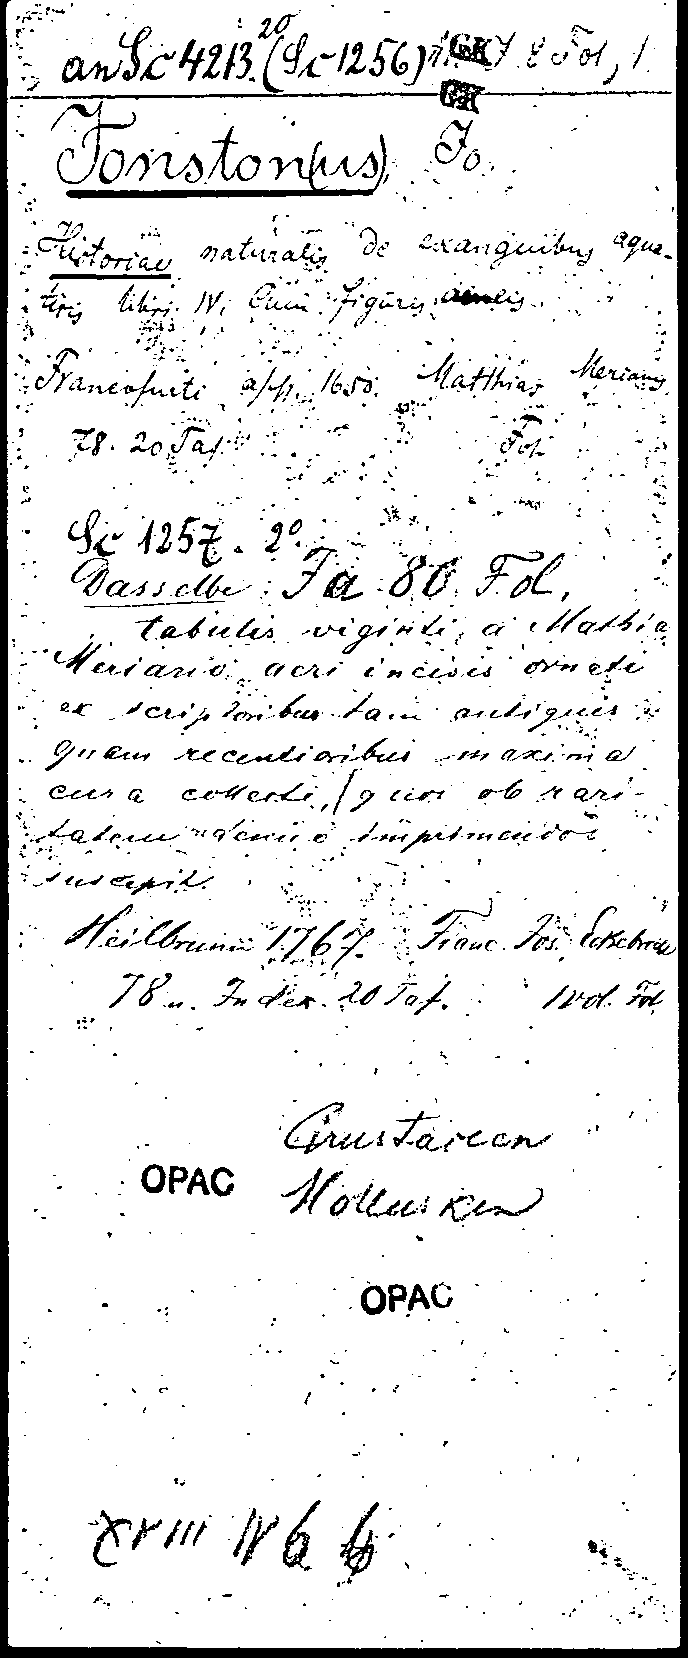 an Sc 4213 2° (Sc 1256) Fol, 1
GK
Jonston(us), Jo.
Historiae naturalis de exanguibus aqua-
ticis libri IV. Cum figuris aeneis.
Francofurti app. 1650. Matthias Merianus
78. 20 Taf. Fol.
Sc 1257. 2°.
Dasselbe. Ja 80. Fol.
tabulis viginti, a Mathia
Meriano aeri incisis ornati
ex scriptoribus tam antiquis
quam recentioribus maxima
cura collecti, / quos ob rari-
tatem denuo imprimendos
suscepit.
Heilbrunn 1767. Franc. Jos. Eckebrecht
78 u. Index. 20 Taf. 1 vol. Fol.
Crustaceen
OPAC Mollusken
OPAC
XVIII IV b 6